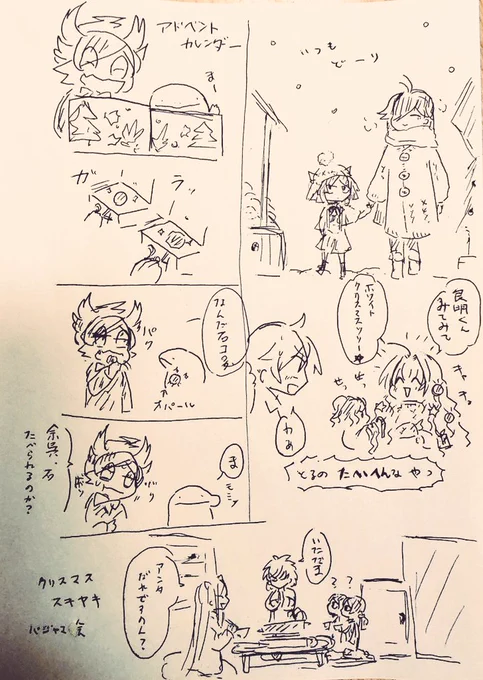 いつも
どーり
良明くん
みてみて
ホワイト
クリスマスツリー
キャ
せっ
せっ
わぁ
とるの たいへんな やつ
アドベント
カレンダー
まー
ガ
ラッ
なんだ石コろ
パク
オパール
ま
モシッ
ボリ
余呉、石
たべられるのか?
いただきます
??
アンタ
だれですのん?
クリスマス
スキヤキ
パジャマ会